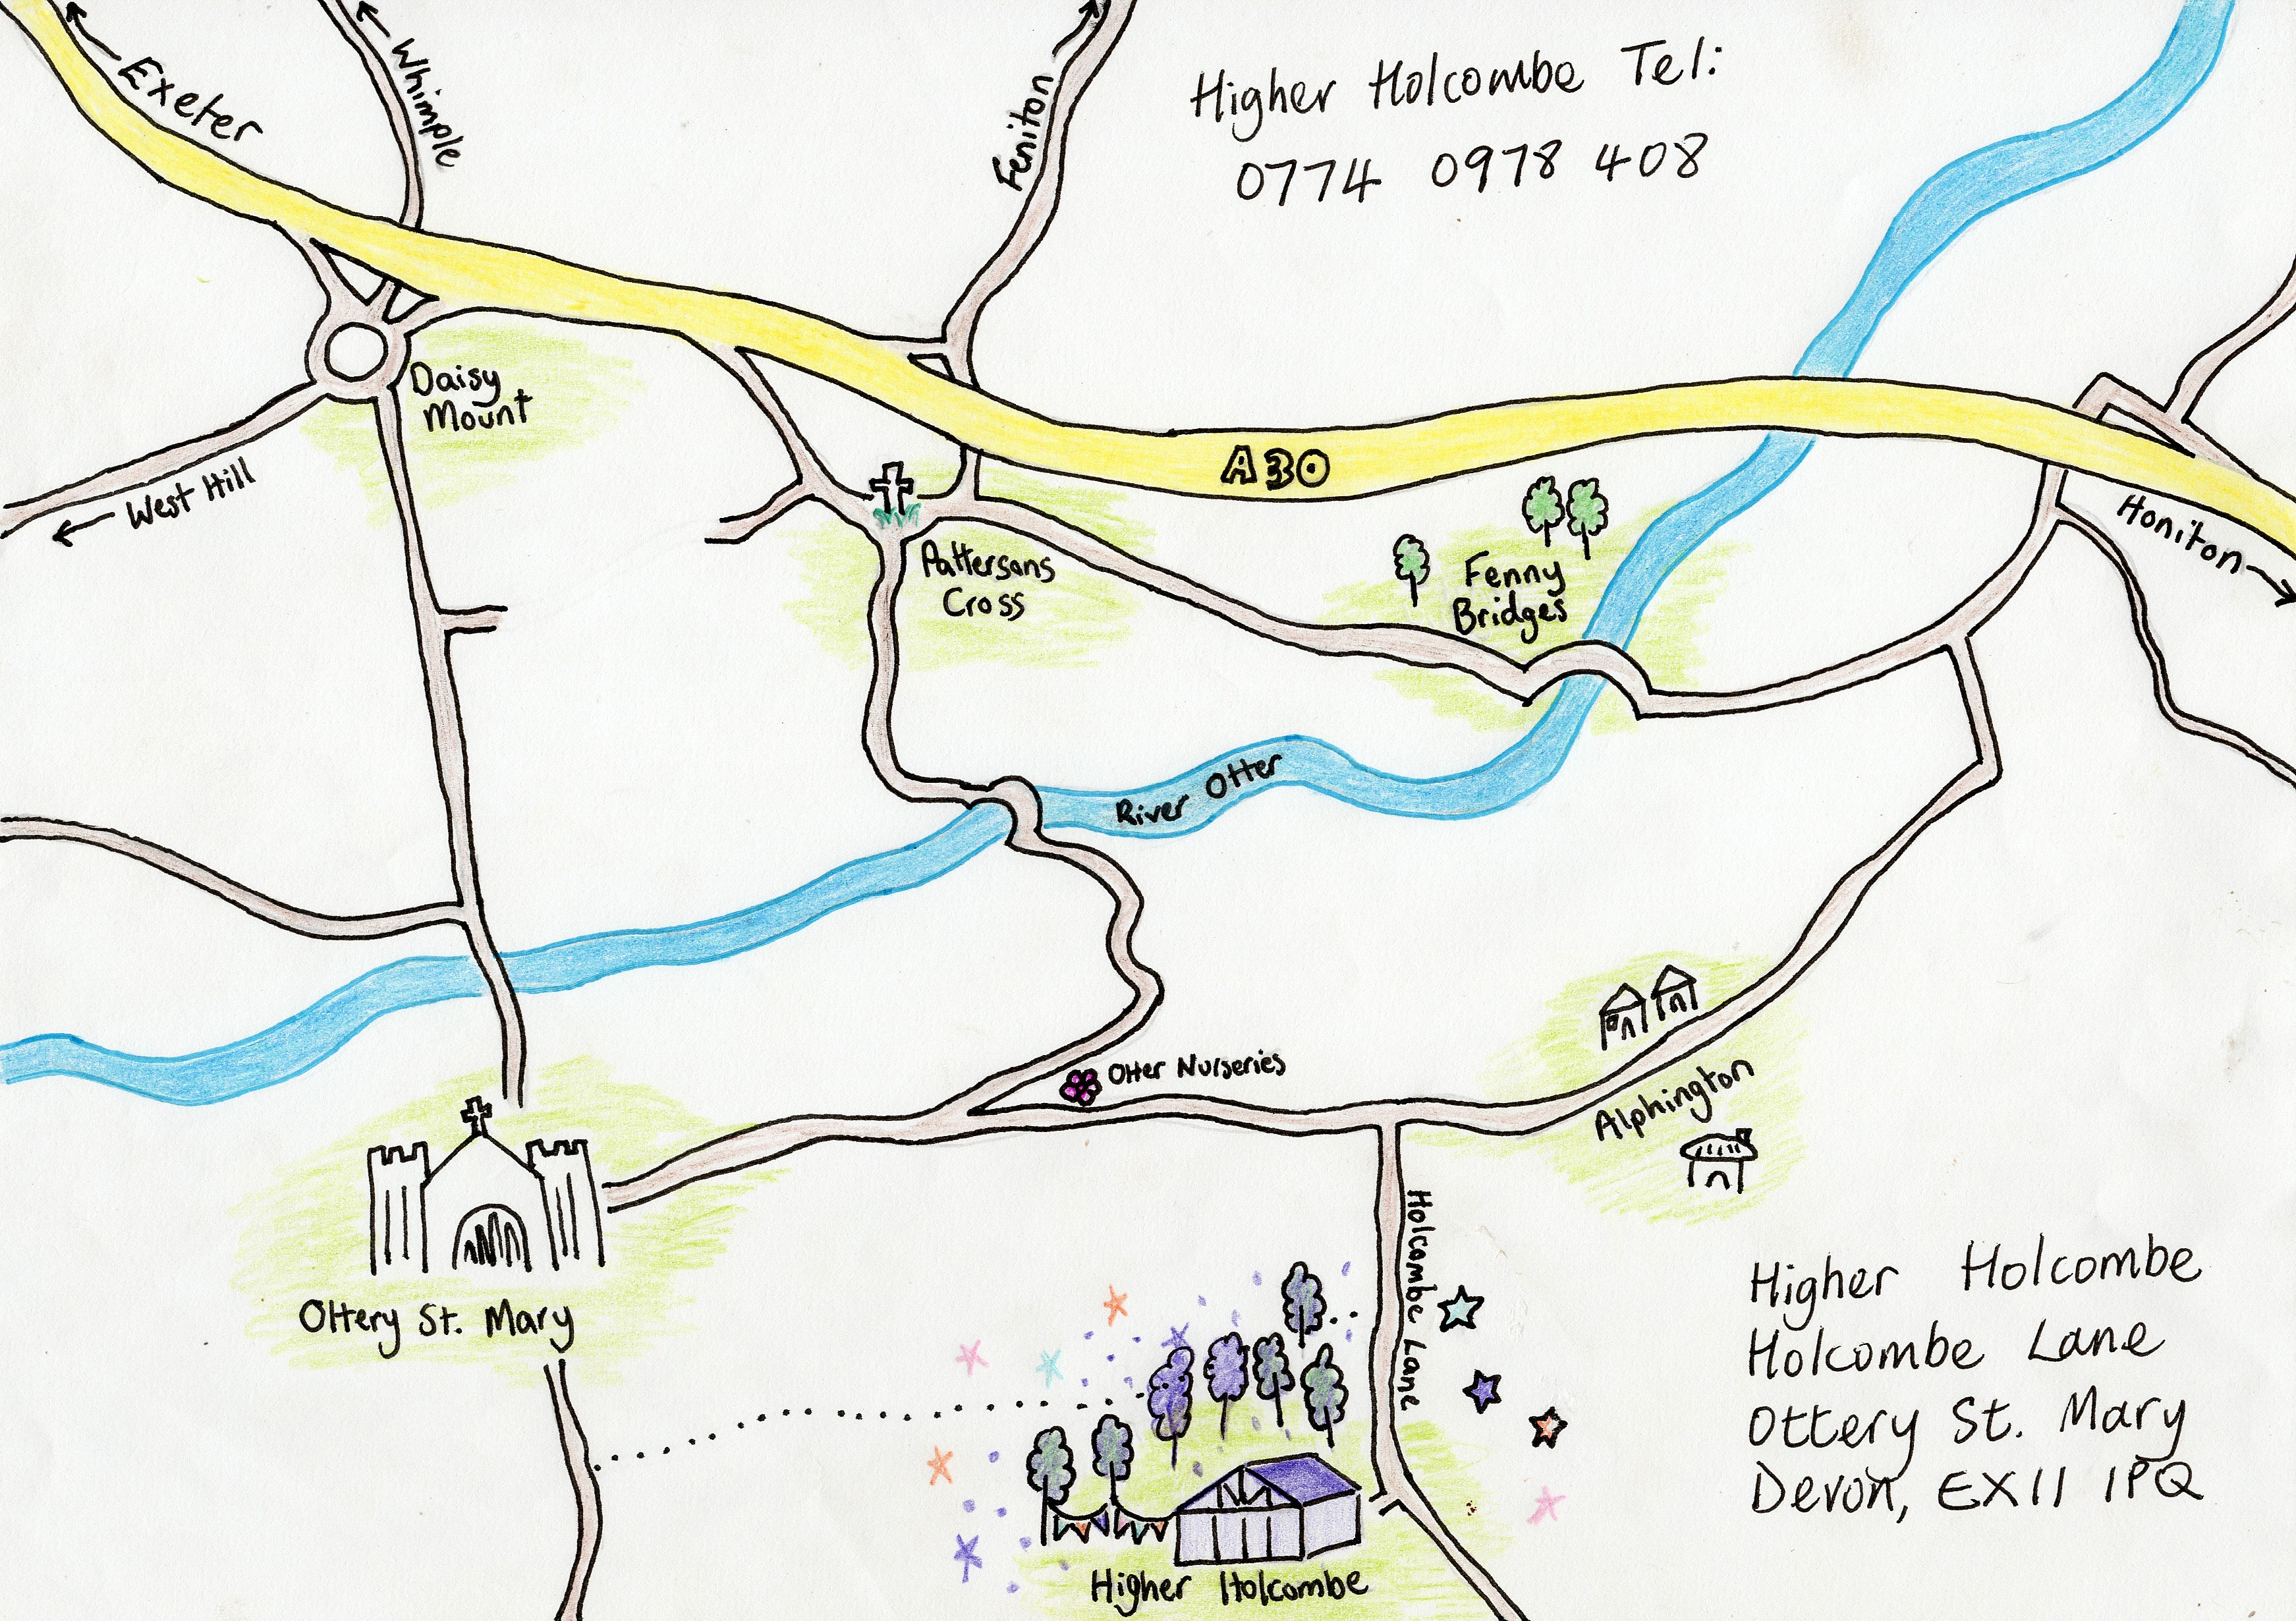 Exeter
Whimple
Feniton
Higher Holcombe Tel:
0774 0978 408
Daisy
Mount
West Hill
A30
Honiton
Pattersons
Cross
Fenny
Bridges
River Otter
Otter Nurseries
Alphington
Holcombe Lane
Ottery St. Mary
Higher Holcombe
Holcombe Lane
Ottery St. Mary
Devon, EX11 1PQ
Higher Holcombe